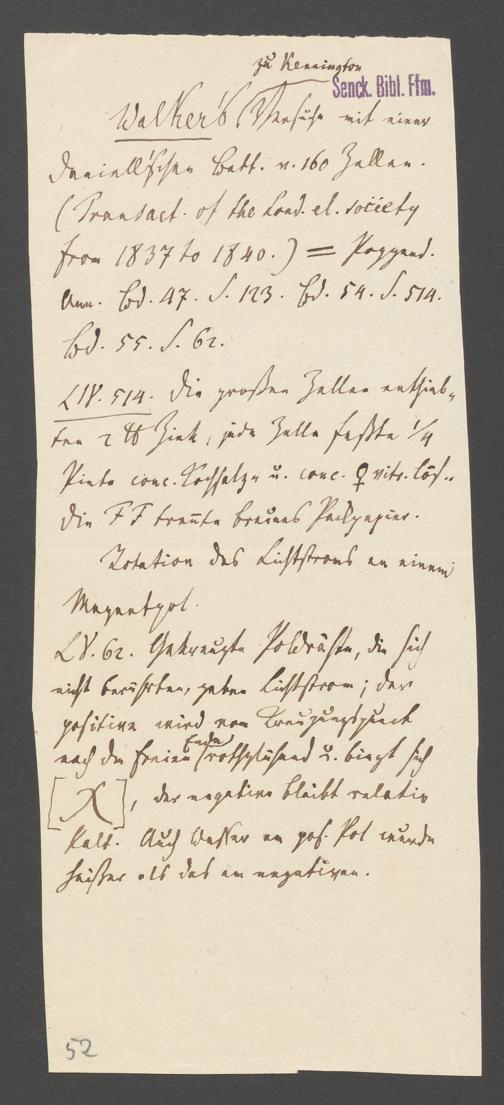 zu Kennington
Senck. Bibl. Ffm.
Walker's Versuche mit einer
Daniell'schen Batt. v. 160 Zellen.
(Transact. of the Lond. el. society
from 1837 to 1840.) = Poggend.
Ann. Bd. 47. S. 123. Bd. 54. S. 514.
Bd. 55. S. 62.
LIV. 514. Die großen Zellen enthiel-
ten 2 ℔ Zink, jede Zelle faßte 1/4
Pinte conc. Kochsalz- u. conc. ♀ vitr. lös..
Die FF trennte braunes Packpapier.
Rotation des Lichtstroms an einem
Magnetpol.
LV. 62. Gekreuzte Poldrähte, die sich
nicht berührten, geben Lichtstrom; der
positive wird vom Kreuzungspunct
nach dem freien Ende rothglühend u. biegt sich
[X], der negative bleibt relativ
kalt. Auch Wasser am pos. Pol wurde
heißer als das am negativen.
52